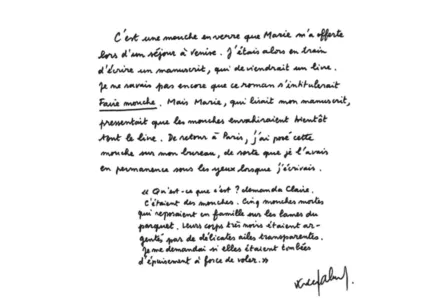 C'est une mouche en verre que Marie m'a offerte
lors d'un séjour à Venise. J'étais alors en train
d'écrire un manuscrit, qui deviendrait un livre.
Je ne savais pas encore que ce roman s'intitulerait
Faire mouche. Mais Marie, qui lisait mon manuscrit,
pressentait que les mouches envahiraient bientôt
tout le livre. De retour à Paris, j'ai posé cette
mouche sur mon bureau, de sorte que je l'avais
en permanence sous les yeux lorsque j'écrivais.
« Qu'est-ce que c'est ? demanda Claire.
C'étaient des mouches. Cinq mouches mortes
qui reposaient en famille sur les lames du
parquet. Leurs corps très noirs étaient ar-
gentés par de délicates ailes transparentes.
Je me demandai si elles étaient tombées
d'épuisement à force de voler. »